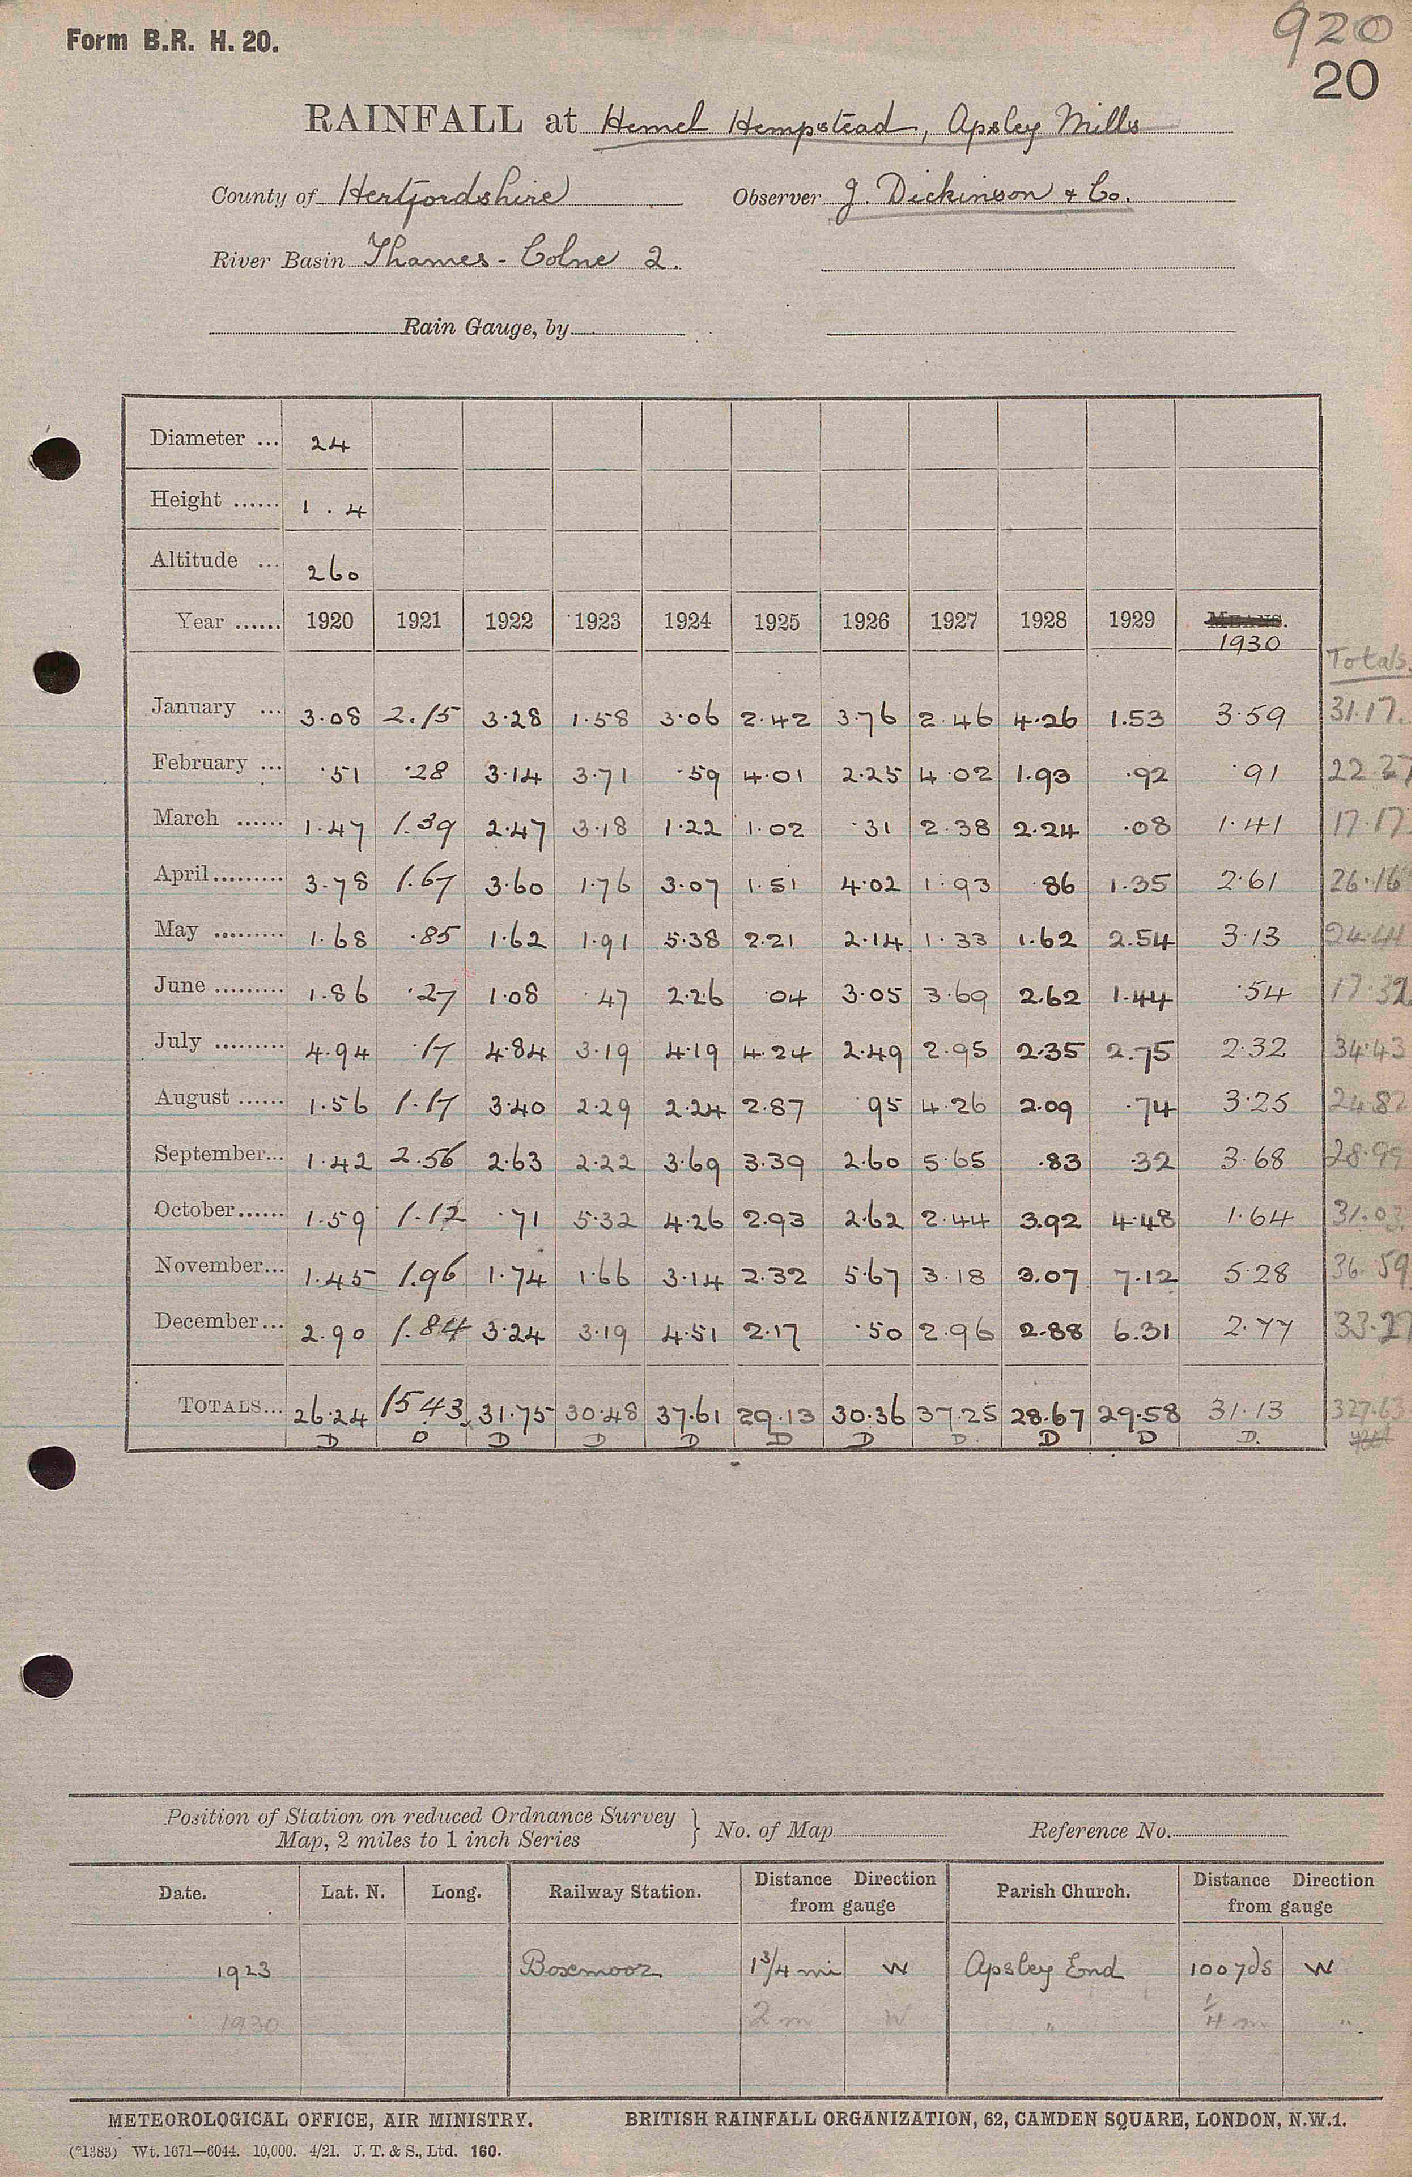 Form B.R. H. 20.
920
20
RAINFALL at Hemel Hempstead, Apsley Mills
County of Hertfordshire Observer J. Dickinson & Co.
River Basin Thames - Colne 2.
Rain Gauge, by
Diameter ... 24
Height ...... 1 . 4
Altitude ... 260
Year ...... 1920 1921 1922 1923 1924 1925 1926 1927 1928 1929 MEANS.
1930 Totals.
January ... 3.08 2.15 3.28 1.58 3.06 2.42 3.76 2.46 4.26 1.53 3.59 31.17.
February ... .51 .28 3.14 3.71 .59 4.01 2.25 4.02 1.93 .92 .91 22.27
March ...... 1.47 1.39 2.47 3.18 1.22 1.02 .31 2.38 2.24 .08 1.41 17.17
April......... 3.78 1.67 3.60 1.76 3.07 1.51 4.02 1.93 .86 1.35 2.61 26.16
May ......... 1.68 .85 1.62 1.91 5.38 2.21 2.14 1.33 1.62 2.54 3.13 24.41
June ......... 1.86 .27 1.08 .47 2.26 .04 3.05 3.69 2.62 1.44 .54 17.32
July ......... 4.94 .17 4.84 3.19 4.19 4.24 2.49 2.95 2.35 2.75 2.32 34.43
August ...... 1.56 1.17 3.40 2.29 2.24 2.87 .95 4.26 2.09 .74 3.25 24.82
September... 1.42 2.56 2.63 2.22 3.69 3.39 2.60 5.65 .83 .32 3.68 28.99
October...... 1.59 1.12 .71 5.32 4.26 2.93 2.62 2.44 3.92 4.48 1.64 31.03
November... 1.45 1.96 1.74 1.66 3.14 2.32 5.67 3.18 3.07 7.12 5.28 36.59
December... 2.90 1.84 3.24 3.19 4.51 2.17 .50 2.96 2.88 6.31 2.77 33.27
TOTALS... 26.24 15.43 31.75 30.48 37.61 29.13 30.36 37.25 28.67 29.58 31.13 327.63
D D D D D D D D. D D D.
Position of Station on reduced Ordnance Survey
Map, 2 miles to 1 inch Series } No. of Map Reference No.
Date. Lat. N. Long. Railway Station. Distance Direction from gauge Parish Church. Distance Direction from gauge
1923 Boxmoor 1 3/4 mi W Apsley End 100 yds W
1930 2 m W " 1/4 m "
METEOROLOGICAL OFFICE, AIR MINISTRY. BRITISH RAINFALL ORGANIZATION, 62, CAMDEN SQUARE, LONDON, N.W.1.
(*1383) Wt. 1671—6044. 10,000. 4/21. J. T. & S., Ltd. 160.